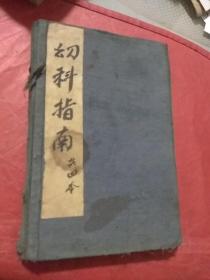 幼科指南
共四本